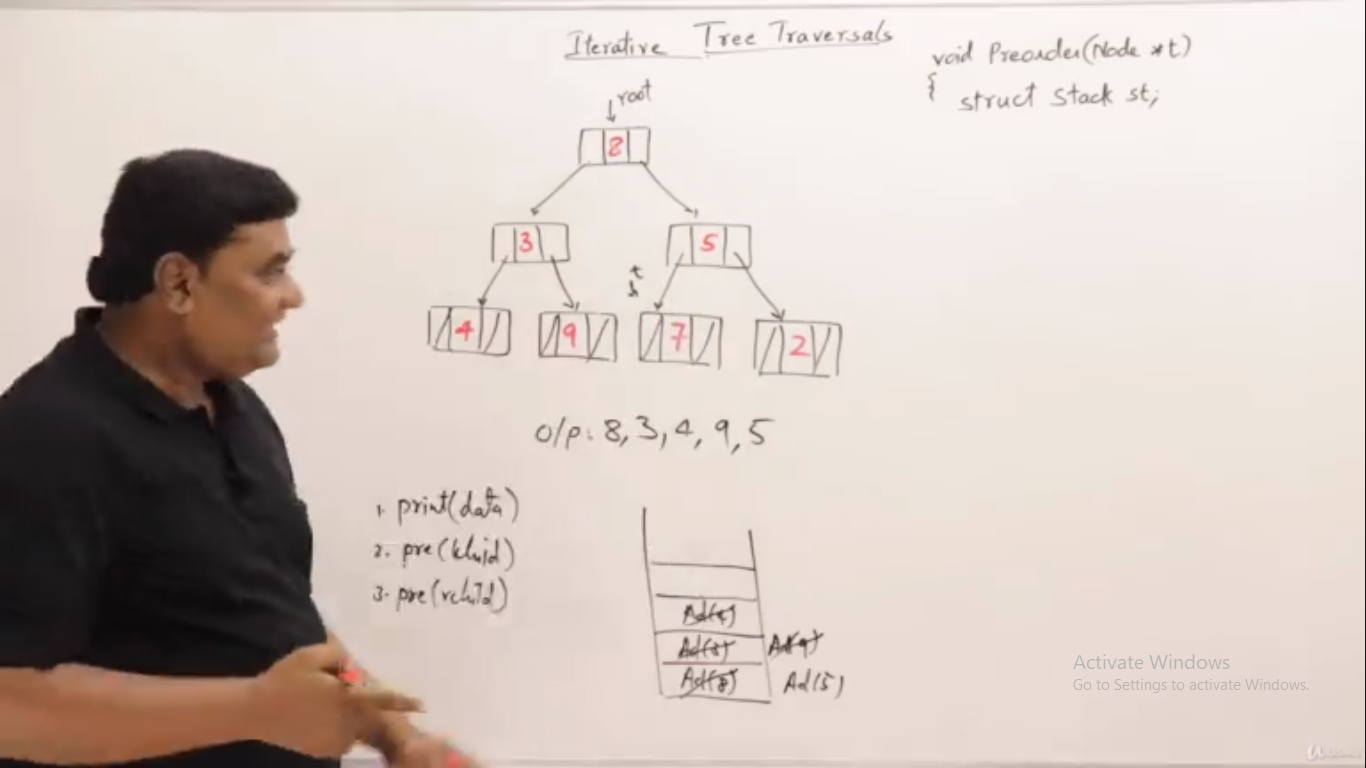 Iterative Tree Traversals
void Preorder(Node *t)
{ struct Stack st;
root
8
3 5
t
4 9 7 2
o/p: 8, 3, 4, 9, 5
1. print(data)
2. pre(
3. pre(rchild)
Ad(4)
Ad(3) Ad(9)
Ad(8) Ad(5)
Activate Windows
Go to Settings to activate Windows.